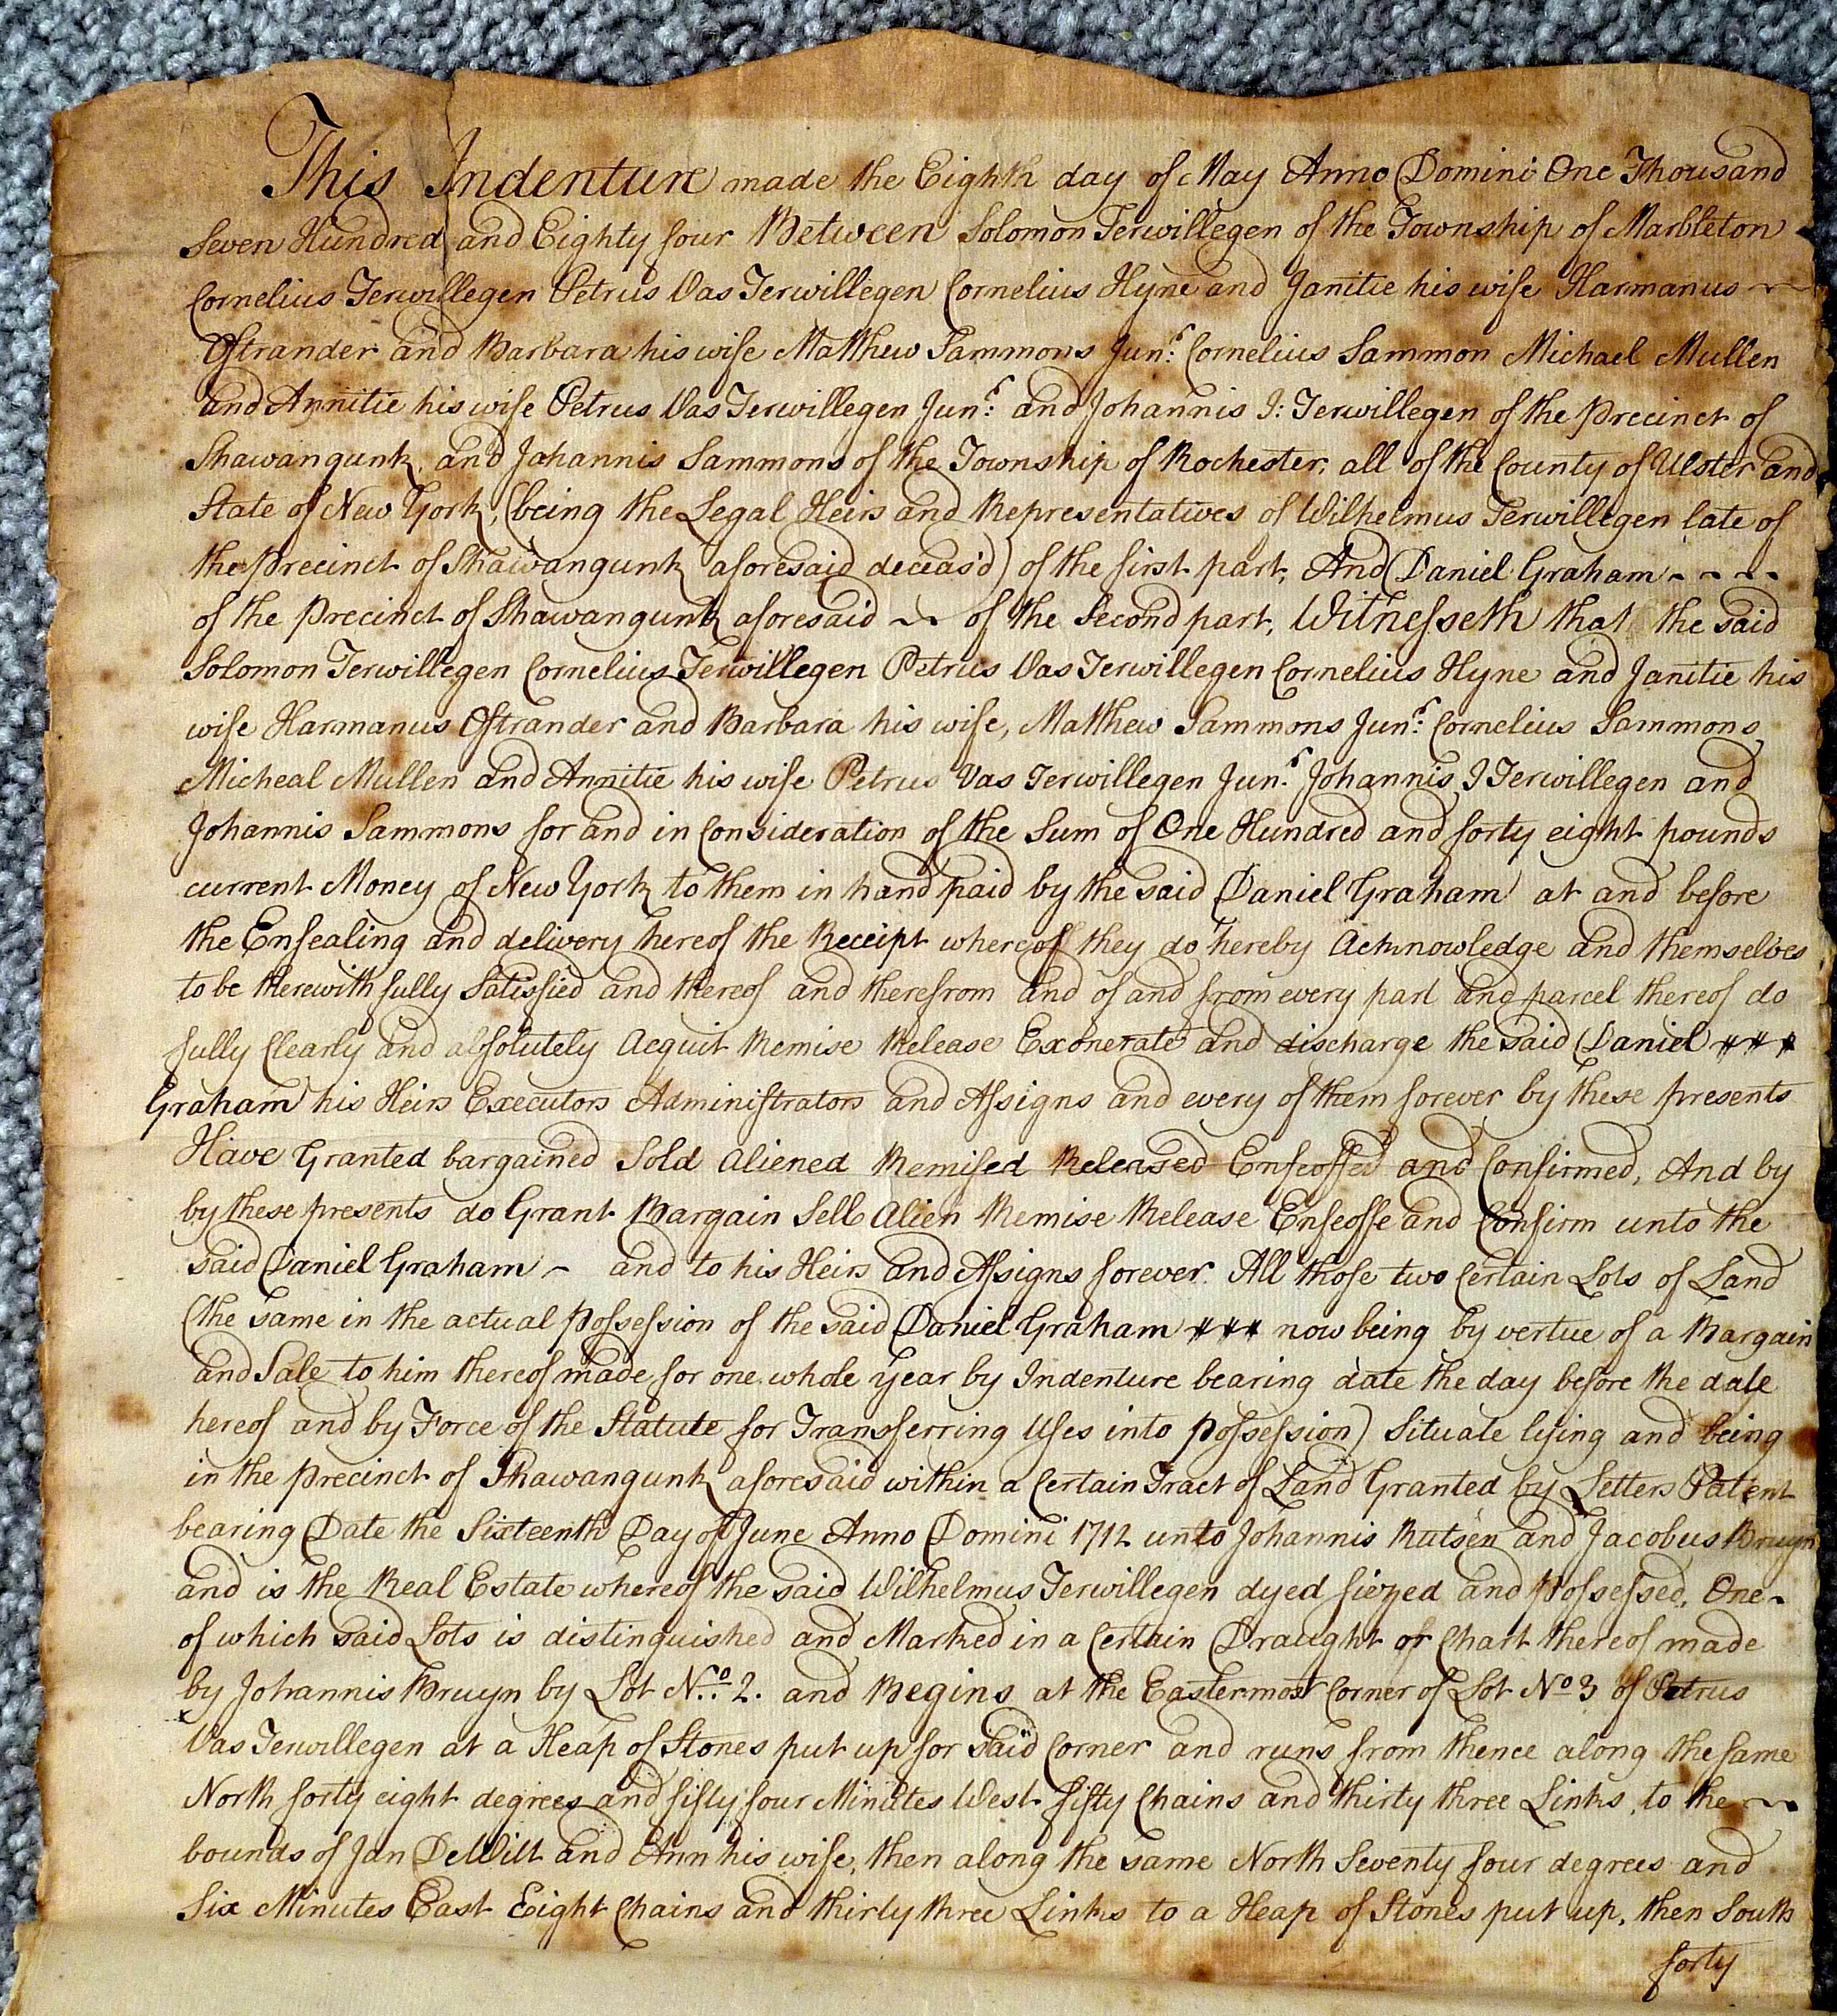 This Indenture made the Eighth day of May Anno Domini One Thousand
Seven Hundred and Eighty four Between Solomon Terwillegen of the Township of Marbleton
Cornelius Terwillegen Petrus Vas Terwillegen Cornelius Hyne and Janitie his wife Harmanus
Ostrander and Barbara his wife Matthew Sammons Junr: Cornelius Sammon Michael Mullen
and Annitie his wife Petrus Vas Terwillegen Junr: and Johannis I: Terwillegen of the Precinct of
Shawangunk, and Johannis Sammons of the Township of Rochester, all of the County of Ulster and
State of New York, (being the Legal Heirs and Representatives of Wilhelmus Terwillegen late of
the Precinct of Shawangunk aforesaid deceas'd) of the first part, And Daniel Graham - - - -
of the Precinct of Shawangunk aforesaid ~~ of the Second part, Witnesseth that the said
Solomon Terwillegen Cornelius Terwillegen Petrus Vas Terwillegen Cornelius Hyne and Janitie his
wife Harmanus Ostrander and Barbara his wife, Matthew Sammons Junr: Cornelius Sammons
Micheal Mullen and Annitie his wife Petrus Vas Terwillegen Junr: Johannis I Terwillegen and
Johannis Sammons for and in Consideration of the Sum of One Hundred and forty eight pounds
current Money of New York to them in hand paid by the said Daniel Graham at and before
the Ensealing and delivery hereof the Receipt whereof they do hereby Acknowledge and themselves
to be therewith fully Satisfied and thereof and therefrom and of and from every part and parcel thereof do
fully Clearly and absolutely Acquit Remise Release Exonerate and discharge the said Daniel
Graham his Heirs Executors Administrators and Assigns and every of them forever by these presents
Have Granted bargained Sold Aliened Remised Released Enfeoffed and Confirmed, And by
by these presents do Grant Bargain Sell Alien Remise Release Enfeoffe and Confirm unto the
said Daniel Graham - and to his Heirs and Assigns forever. All those two Certain Lots of Land
(the same in the actual Possession of the said Daniel Graham now being by vertue of a Bargain
and Sale to him thereof made for one whole Year by Indenture bearing date the day before the date
hereof and by Force of the Statute for Transferring Uses into Possession) Situate lying and being
in the Precinct of Shawangunk aforesaid within a Certain Tract of Land Granted by Letters Patent
bearing Date the Sixteenth Day of June Anno Domini 1712 unto Johannis Rutsen and Jacobus Bruyn
and is the Real Estate whereof the said Wilhelmus Terwillegen dyed siezed and Possessed, One-
of which said Lots is distinguished and Marked in a Certain Draught or Chart thereof made
by Johannis Bruyn by Lot No: 2. and Begins at the Eastermost Corner of Lot No 3 of Petrus
Vas Terwillegen at a Heap of Stones put up for said Corner and runs from thence along the same
North forty eight degrees and fifty four Minutes West fifty Chains and thirty three Links, to the
bounds of Jan DeWitt and Ann his wife, then along the same North Seventy four degrees and
Six Minutes East Eight Chains and thirty three Links to a Heap of Stones put up, then South
forty